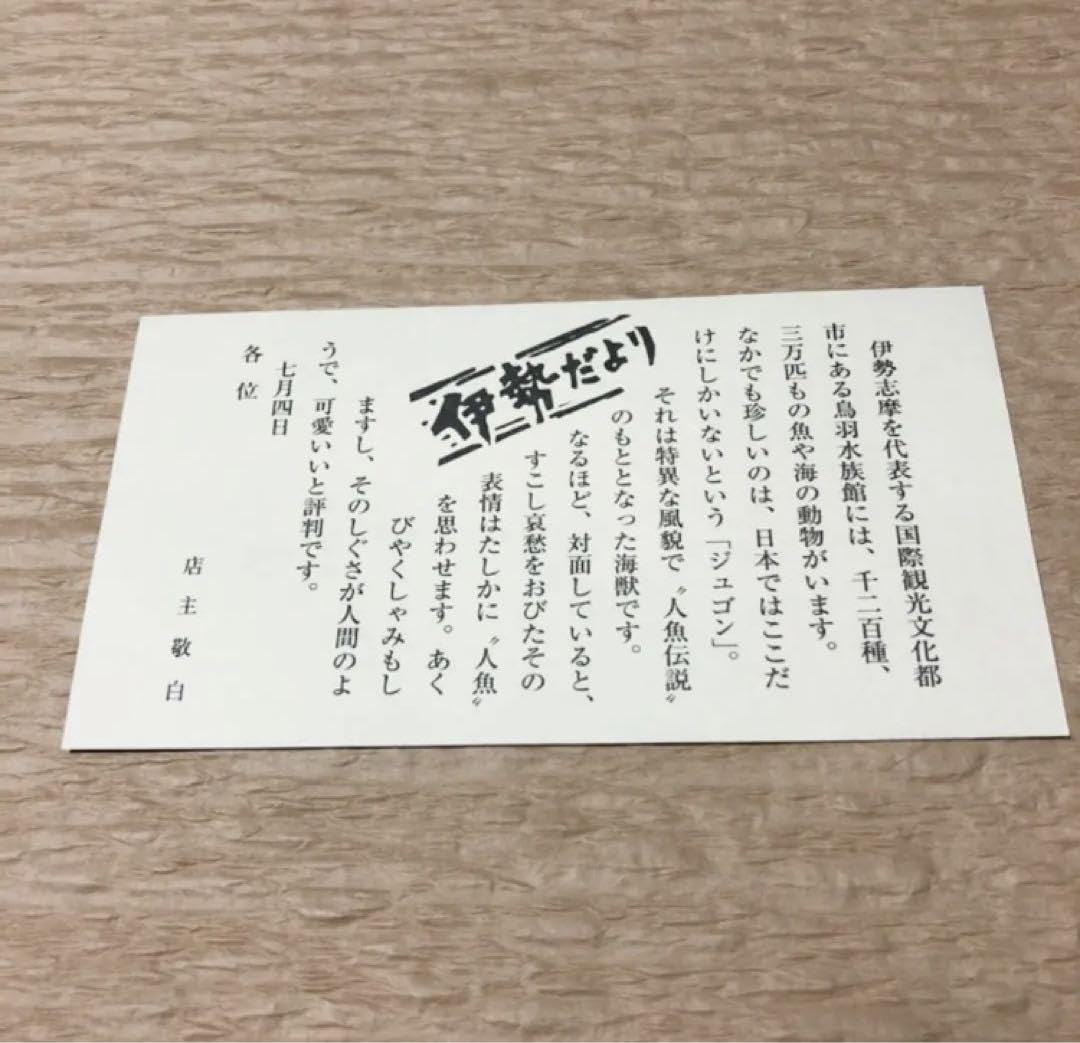 伊勢だより
伊勢志摩を代表する国際観光文化都
市にある鳥羽水族館には、千二百種、
三万匹もの魚や海の動物がいます。
なかでも珍しいのは、日本ではここだ
けにしかいないという「ジュゴン」。
それは特異な風貌で〝人魚伝説〟
のもととなった海獣です。
なるほど、対面していると、
すこし哀愁をおびたその
表情はたしかに〝人魚〟
を思わせます。あく
びやくしゃみもし
ますし、そのしぐさが人間のよ
うで、可愛いいと評判です。
七月四日
各位
店主敬白